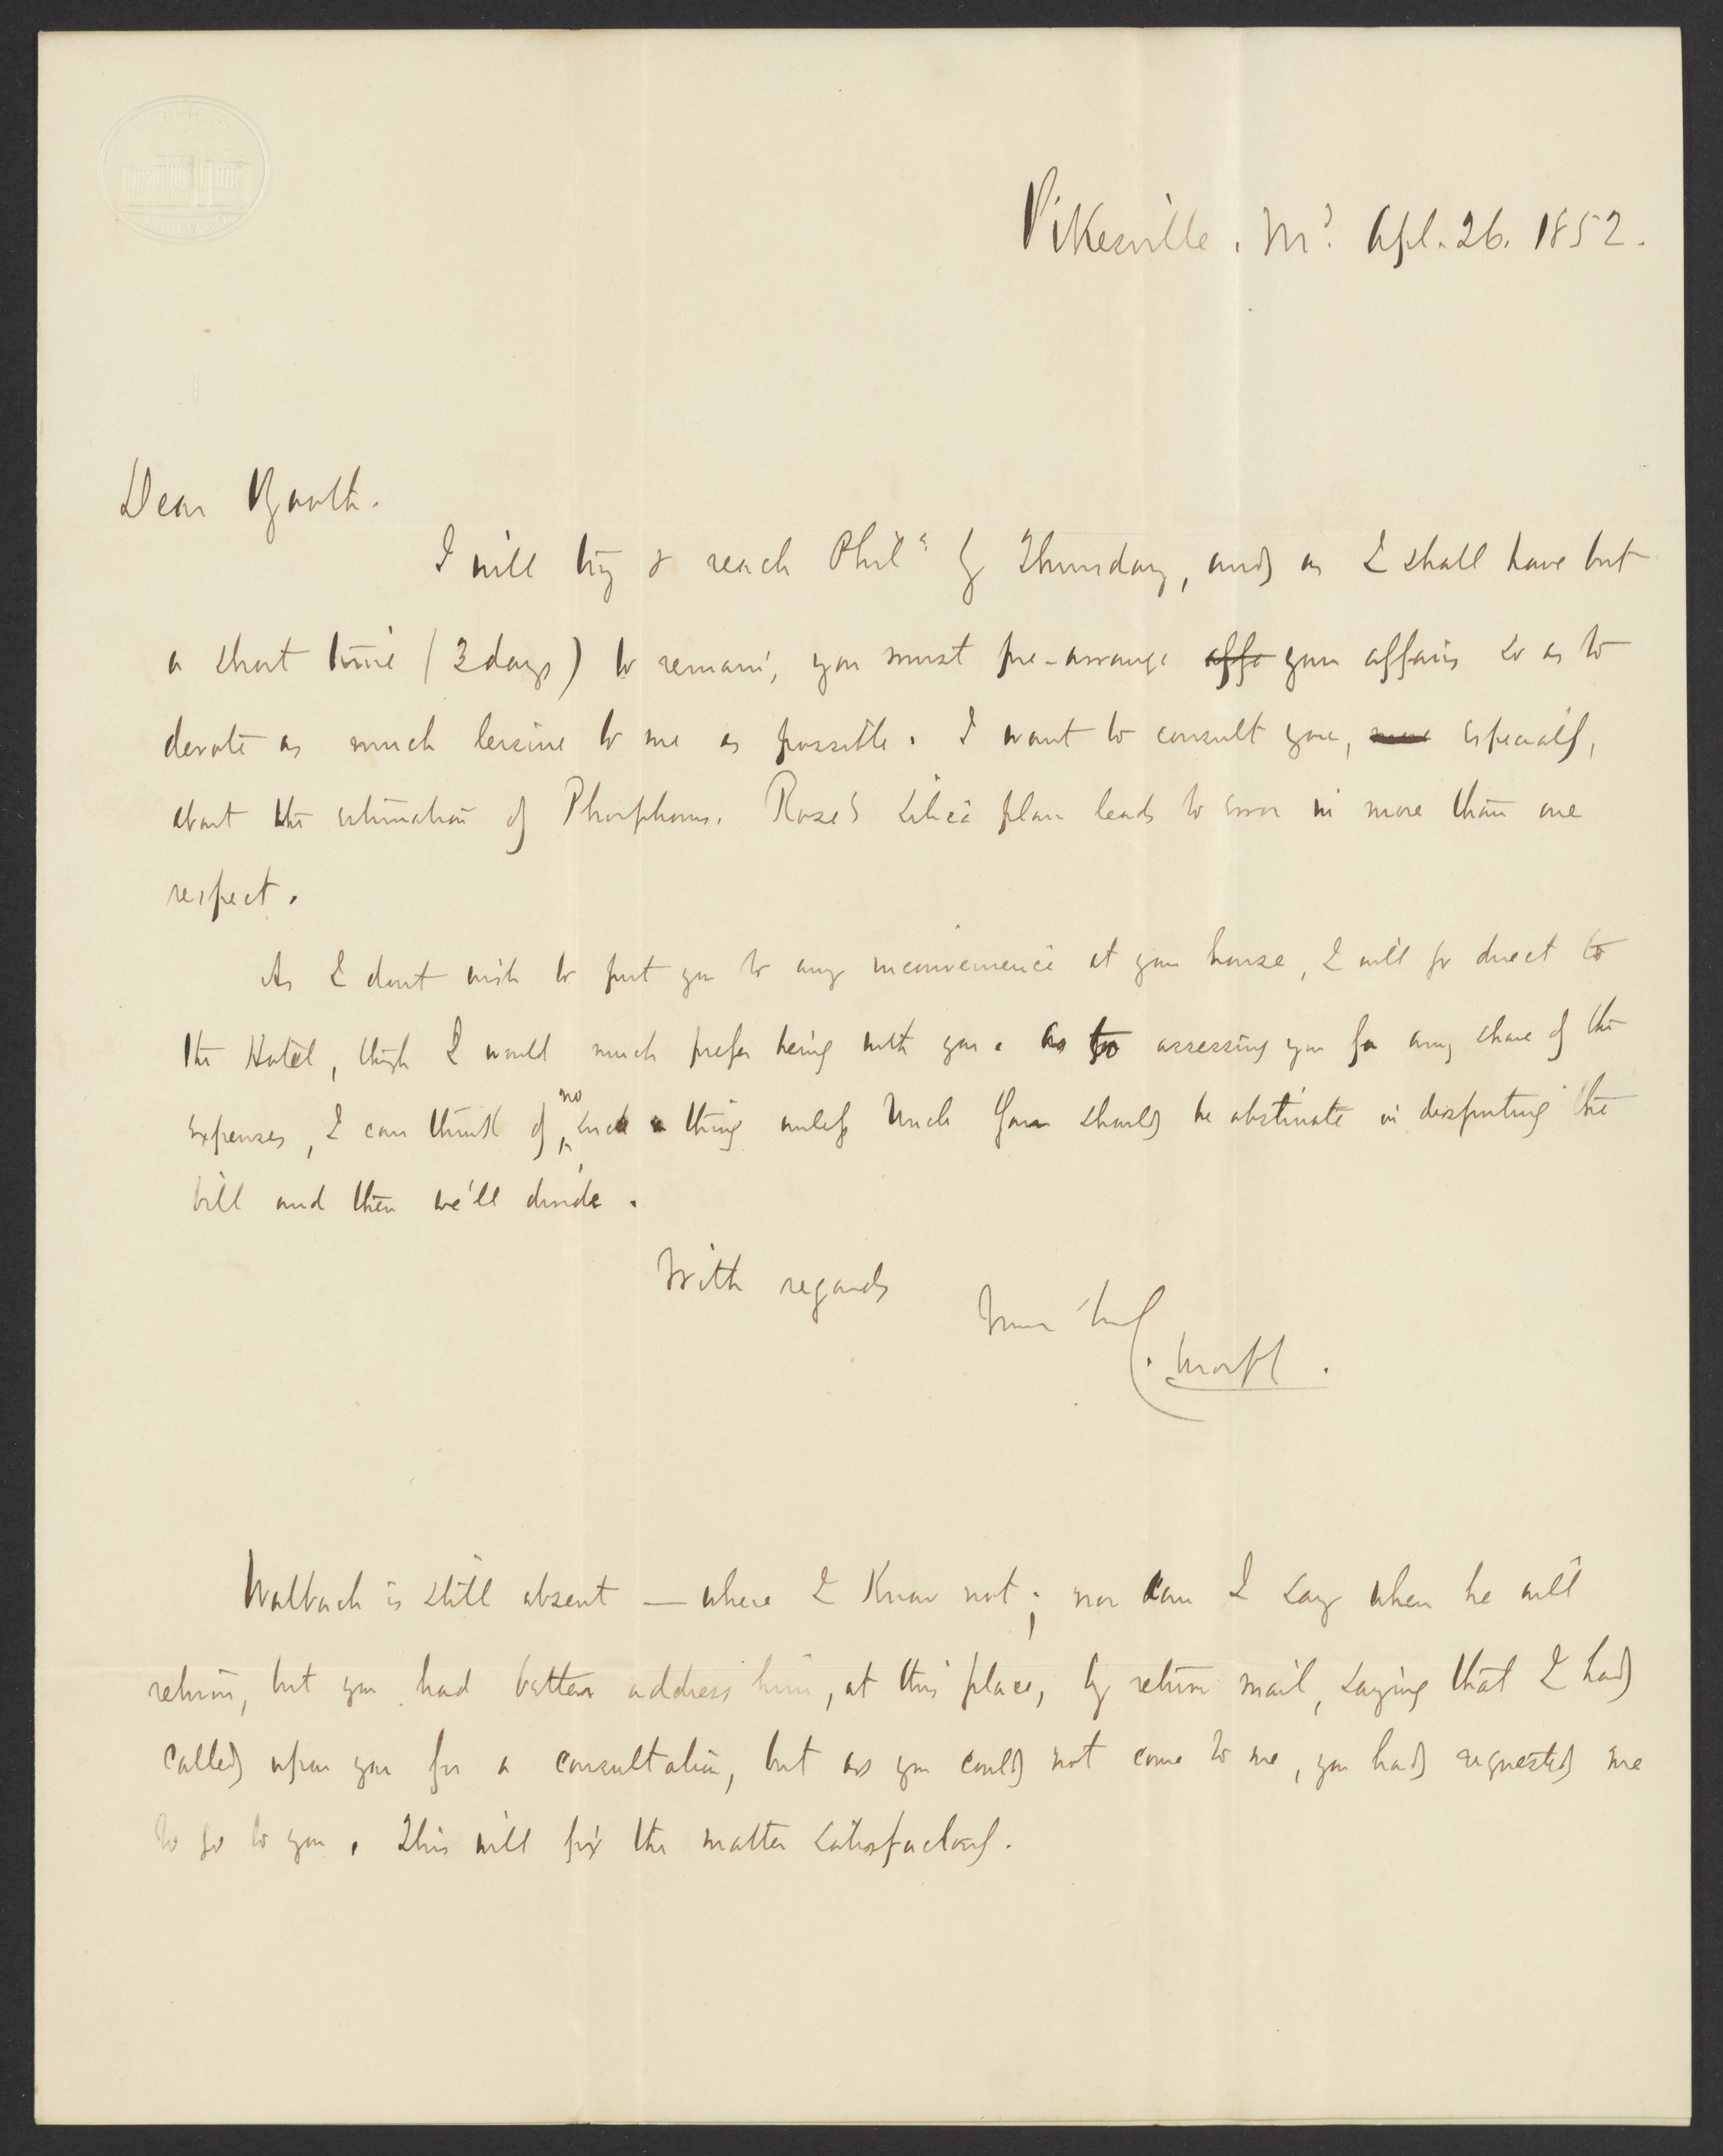 Pikesville. Md. Apl. 26. 1852.
Dear Booth.
I will try & reach Phila by Thursday, and as I shall have but
a short time (3 days) to remain, you must pre-arrange affa your affairs so as to
devote as much leisure to me as possible. I want to consult you, especially,
about the estimation of Phosphorus. Rose's Silica plan leads to error in more than one
respect.
As I dont wish to put you to any inconvenience at your house, I will go direct to
the Hotel, though I would much prefer being with you. As to assessing you for any share of the
expenses, I can think of no such thing unless Uncle Sam should be obstinate in disputing the
bill and then we'll divide.
With regards
Your
C. Morfit.
Walbach is still absent — where I know not; nor can I say when he will
return, but you had better address him, at this place, by return mail, saying that I had
called upon you for a consultation, but as you could not come to me, you had requested me
to go to you. This will fix the matter satisfactorily.